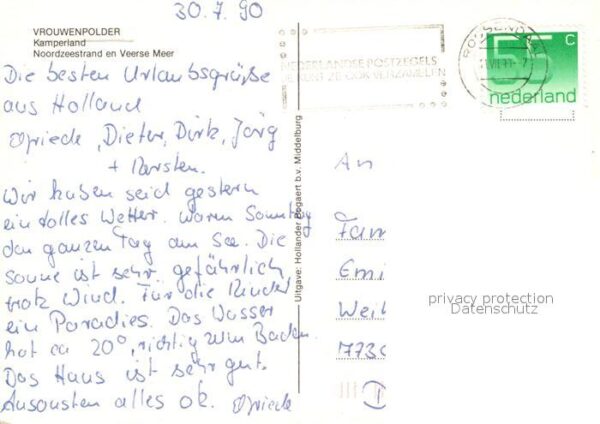 30.7.90
VROUWENPOLDER
Kamperland
Noordzeestrand en Veerse Meer
Die besten Urlaubsgrüße
aus Holland
Friede, Dieter, Dirk, Jörg
+ Karsten.
Wir haben seid gestern
ein tolles Wetter. Waren Sonntag
den ganzen Tag am See. Die
Sonne ist sehr gefährlich
trotz Wind. Für die Kinder
ein Paradies. Das Wasser
hat ca 20°, richtig zum Baden.
Das Haus ist sehr gut.
Ansonsten alles ok. Friede
Uitgave: Hollander Bogaert b.v. Middelburg
NEDERLANDSE POSTZEGELS
JE KUNT ZE OOK VERZAMELEN
ROOSENDAAL
55 C
nederland
An
Fam
Emi
Weil
773
privacy protection
Datenschutz